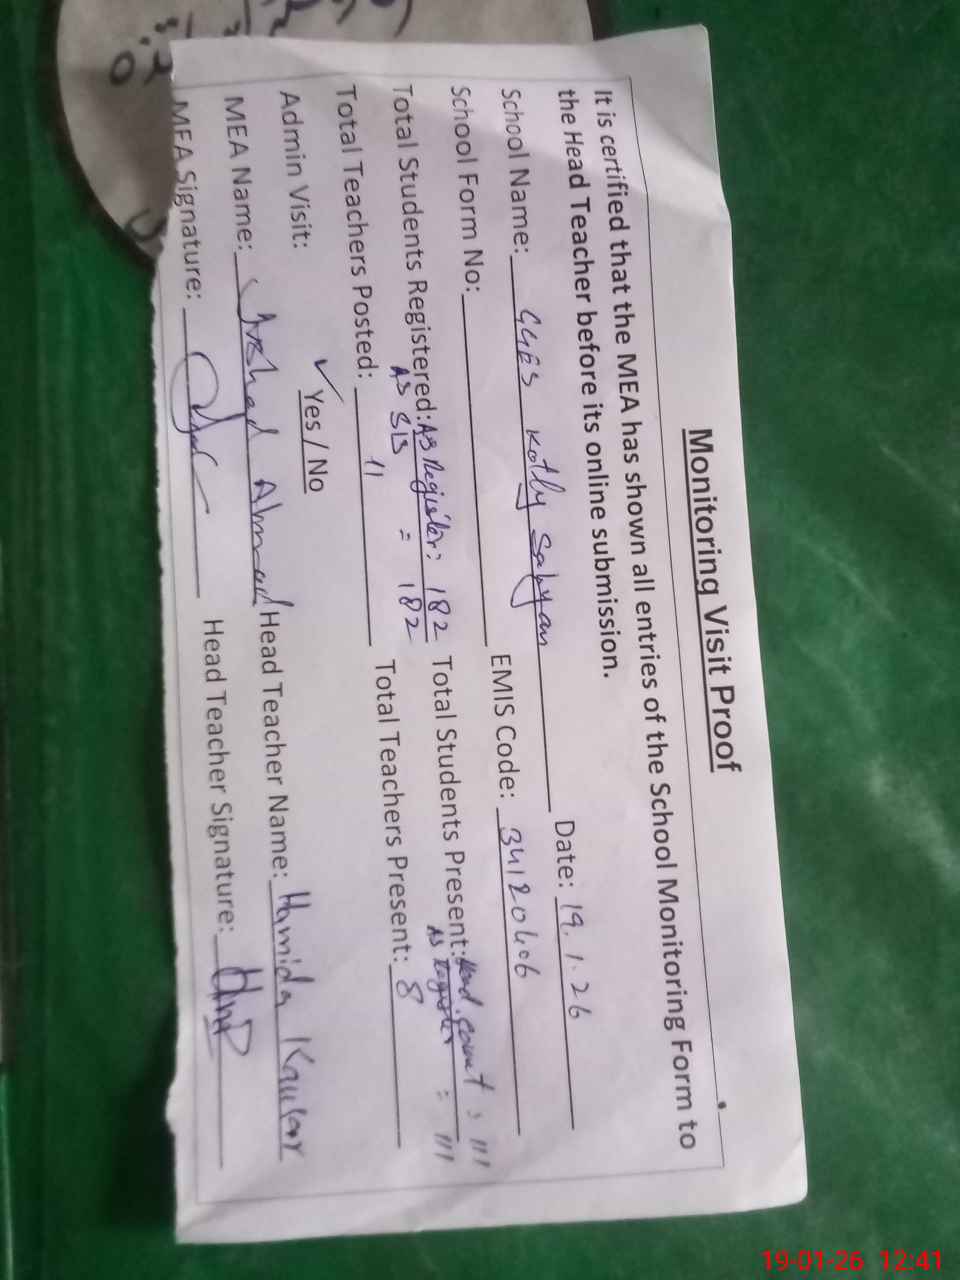 Monitoring Visit Proof
It is certified that the MEA has shown all entries of the School Monitoring Form to
the Head Teacher before its online submission.
School Name: GGES Kotly Sahyan Date: 19.1.26
School Form No: EMIS Code: 34120606
Total Students Registered: As Register: 182 Total Students Present: Head count : 111
As SIS = 182 As Register = 111
Total Teachers Posted: 11 Total Teachers Present: 8
Admin Visit: ✓ Yes / No
MEA Name: Irshad Ahmad Head Teacher Name: Hamida Kausar
MEA Signature: Head Teacher Signature:
19-01-26 12:41